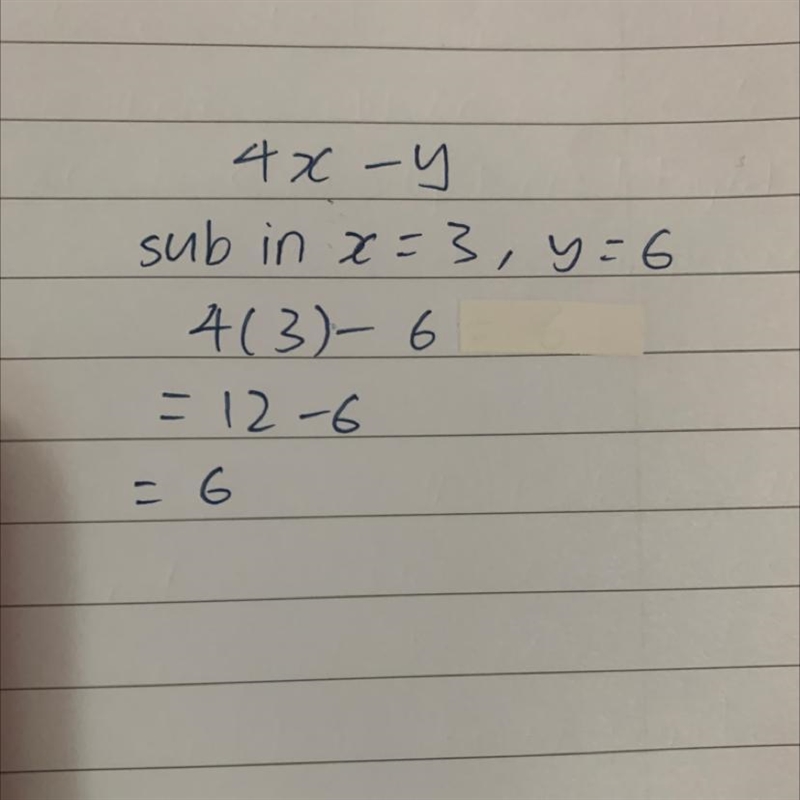 4x - y
sub in x = 3, y = 6
4(3) - 6
= 12 - 6
= 6